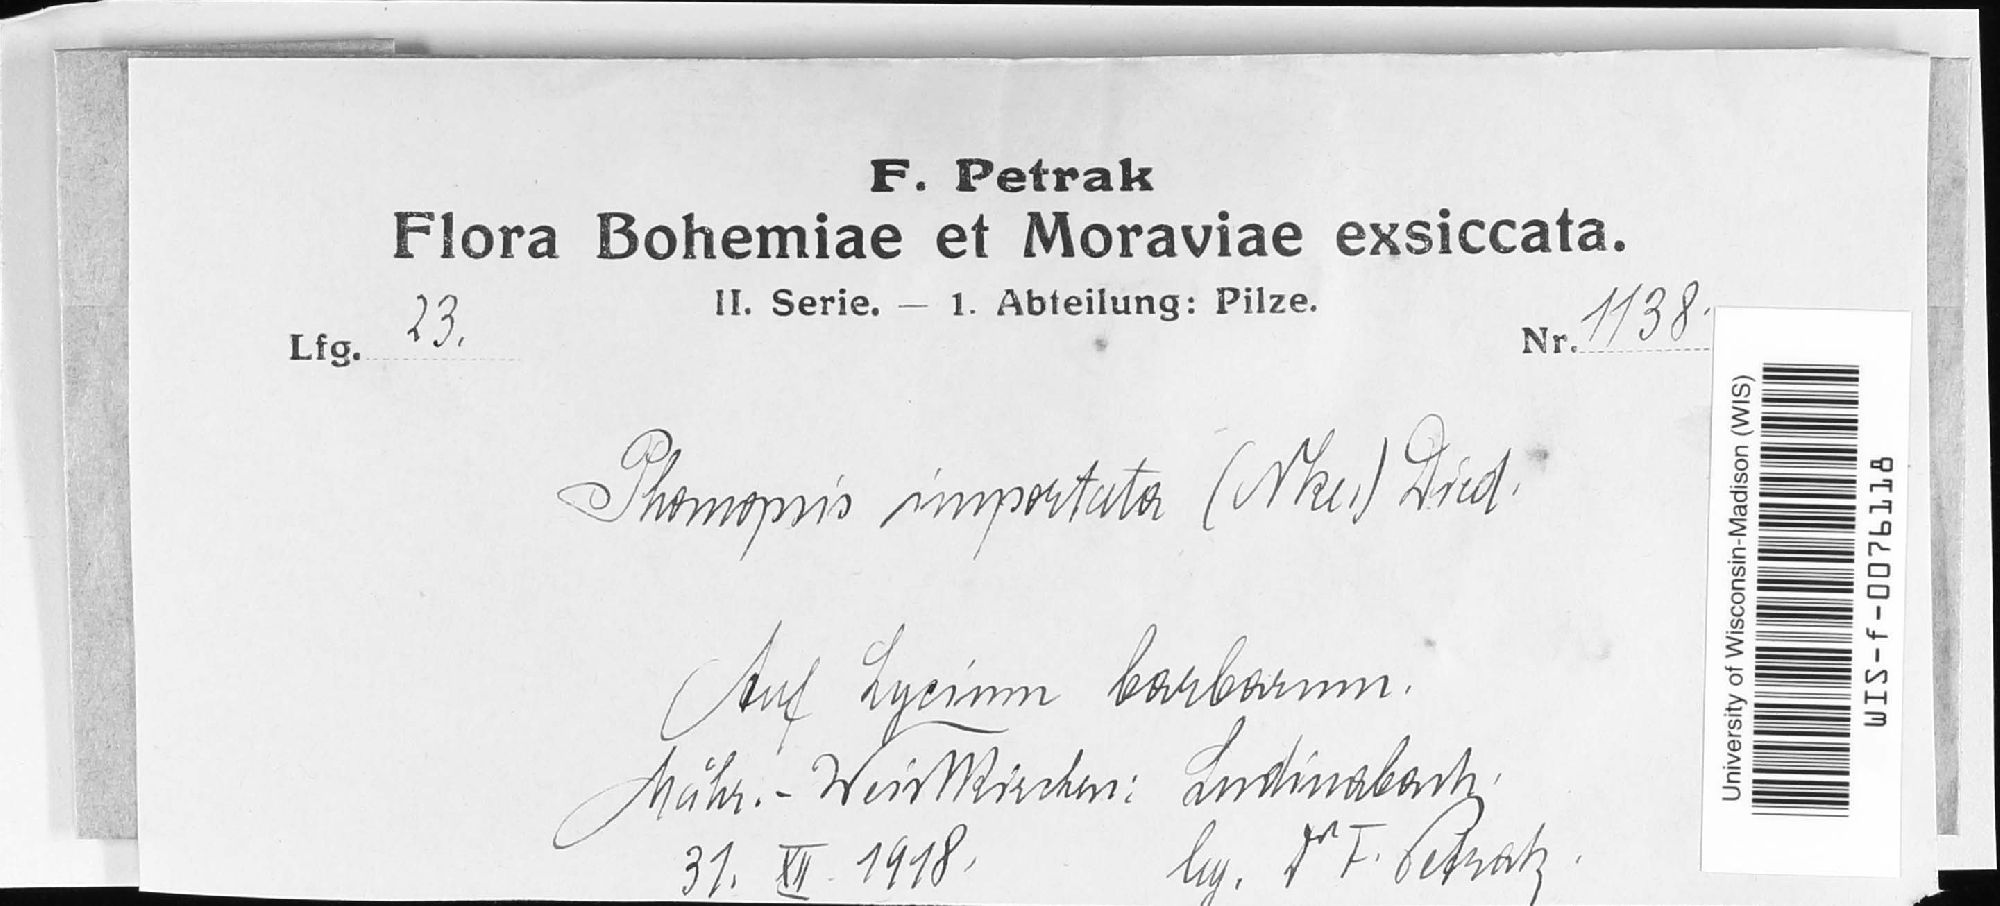 F. Petrak
Flora Bohemiae et Moraviae exsiccata.
II. Serie. — 1. Abteilung: Pilze.
Lfg. 23.
Nr. 1138.
Phomopsis importata (Nke.) Died.
Auf Lycium barbarum.
Mähr.-Weisskirchen: Ludinabach.
31. XII. 1918.
lg. Dr F. Petrak.
University of Wisconsin-Madison (WIS)
WIS-f-0076118